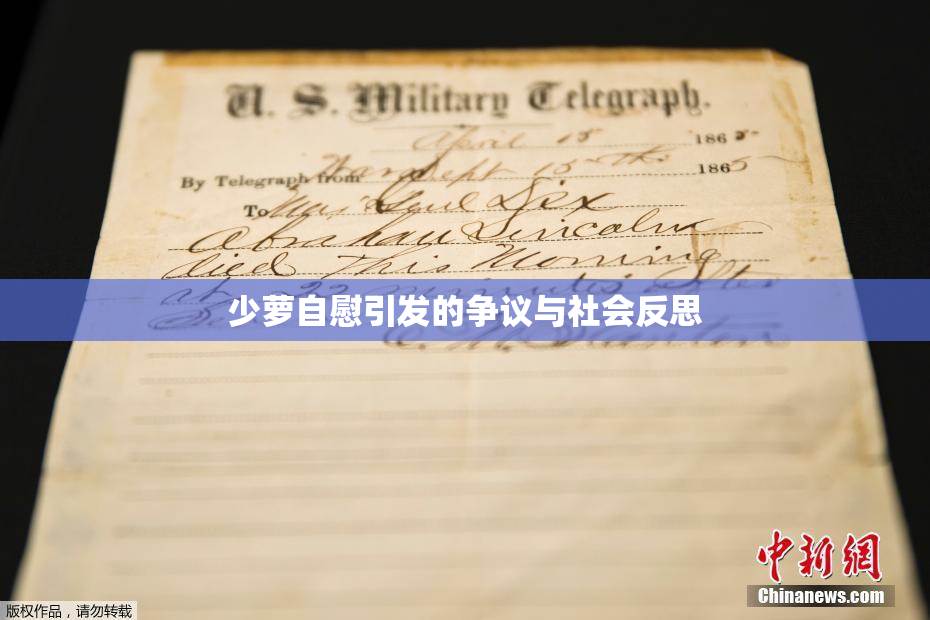 U. S. Military Telegraph.
April 15 1865
By Telegraph from War Dept 15th 1865
To Maj Genl Dix
Abraham Lincoln
died This Morning
at 22 minutes after
少萝自慰引发的争议与社会反思
中新網
Chinanews.com
版权作品，请勿转载